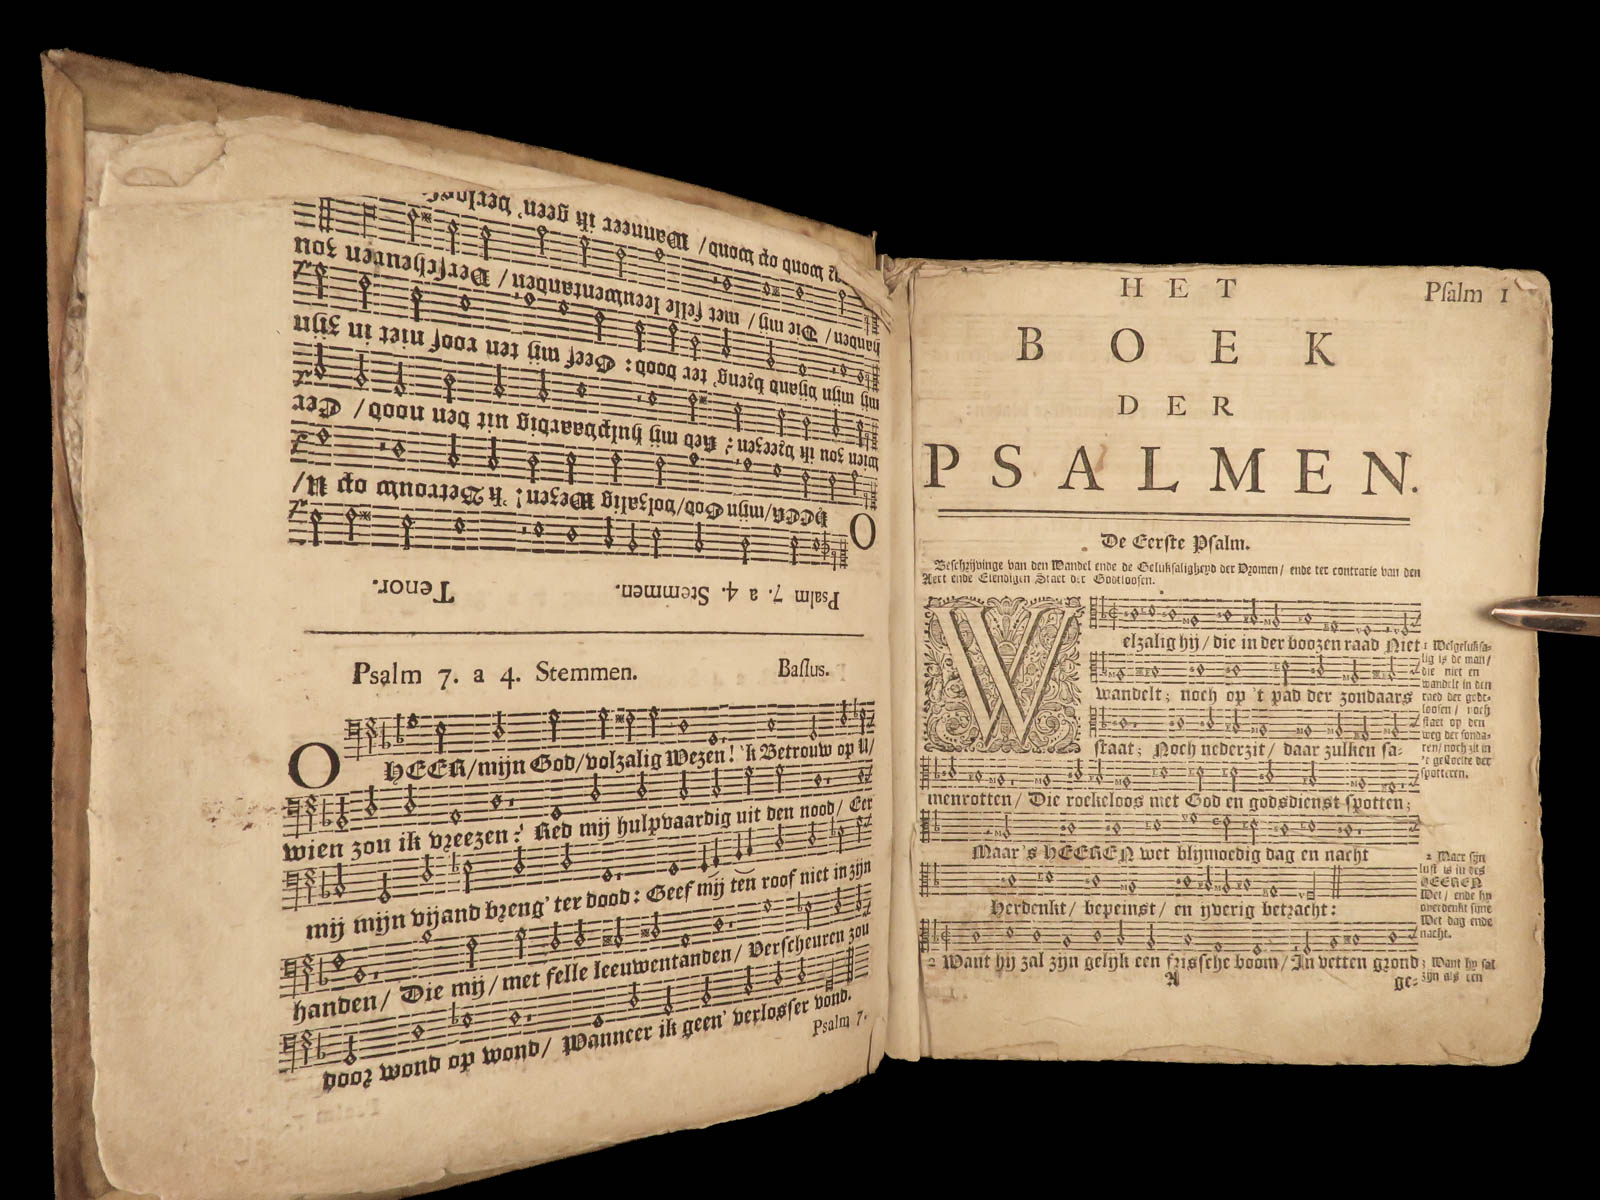 Wanneer ik geen' verlosser
wond op wond/
handen/ Die mij / met felle leeuwentanden / Verscheuren zou
mij mijn vijand breng' ter dood: Geef mij ten roof niet in zijn
wien zou ik vreezen? Red mij hulpvaardig uit den nood / Eer
O HEER/mijn God/volzalig Wezen! 'k Betrouw op U/
Psalm 7. a 4. Stemmen. Tenor.
Psalm 7. a 4. Stemmen. Bassus.
O HEER/mijn God/volzalig Wezen! 'k Betrouw op U/
wien zou ik vreezen? Red mij hulpvaardig uit den nood/ Eer
mij mijn vijand breng' ter dood: Geef mij ten roof niet in zijn
handen/ Die mij/ met felle leeuwentanden/ Verscheuren zou
door wond op wond/ Wanneer ik geen' verlosser vond.
Psalm 7.
HET
Psalm 1
BOEK
DER
PSALMEN.
De Eerste Psalm.
Beschrijvinge van den Wandel ende de Geluksaligheyd der Vromen/ ende ter contrarie van den
Aert ende Elendigen Staet der Godtloosen.
Welzalig hij/ die in der boozen raad Niet
wandelt; noch op 't pad der zondaars
staat; Noch nederzit/ daar zulken sa-
menrotten/ Die roekeloos met God en godsdienst spotten;
Maar 's HEEREN wet blijmoedig dag en nacht
Herdenkt/ bepeinst/ en yverig betracht:
2 Want hij zal zijn gelyk een frissche boom/ In vetten grond
A
ge-
1 Welgeluksa-
lig is de man/
die niet en
wandelt in den
raed der godt-
loosen/ noch
staet op den
weg der sonda-
ren/ noch zit in
't gestoelte der
spotteren.
2 Maer sijn
lust is in des
HEEREN
Wet/ ende hy
overdenkt sijne
Wet dag ende
nacht.
3 Want hy sal
zijn als een